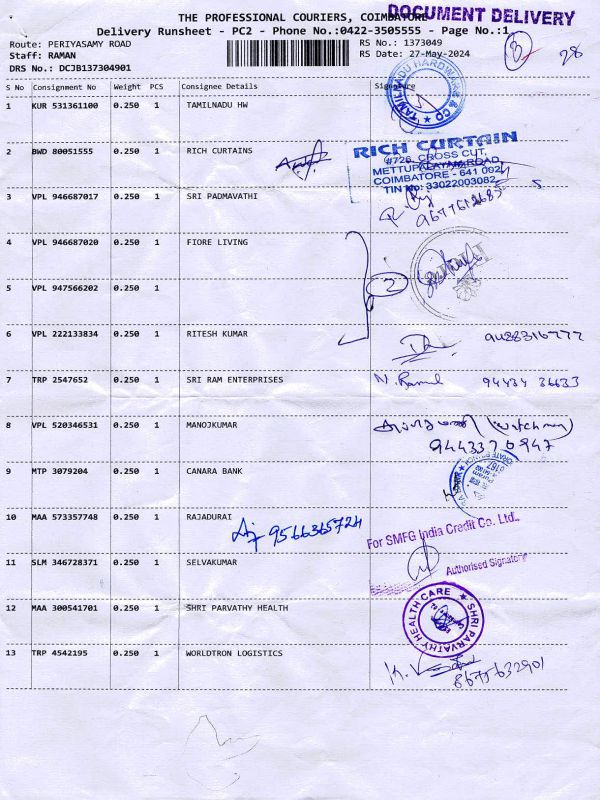 THE PROFESSIONAL COURIERS, COIMBATORE
DOCUMENT DELIVERY
Delivery Runsheet - PC2 - Phone No.:0422-3505555 - Page No.:1
Route: PERIYASAMY ROAD
RS No.: 1373049
3
28
Staff: RAMAN
RS Date: 27-May-2024
DRS No.: DCJB137304901
S No Consignment No Weight PCS Consignee Details Signature
1 KUR 531361100 0.250 1 TAMILNADU HW
TAMILNADU HARDWARE & CO
2 BWD 80051555 0.250 1 RICH CURTAINS
RICH CURTAIN
#726, CROSS CUT,
METTUPALAYAM ROAD,
COIMBATORE - 641 002
TIN No: 33022003082
3 VPL 946687017 0.250 1 SRI PADMAVATHI
4 VPL 946687020 0.250 1 FIORE LIVING
5 VPL 947566202 0.250 1
2
6 VPL 222133834 0.250 1 RITESH KUMAR
7 TRP 2547652 0.250 1 SRI RAM ENTERPRISES
94434 36633
8 VPL 520346531 0.250 1 MANOJKUMAR
(watchman)
9443370947
9 MTP 3079204 0.250 1 CANARA BANK
10 MAA 573357748 0.250 1 RAJADURAI
9566365724
For SMFG India Credit Co. Ltd.,
11 SLM 346728371 0.250 1 SELVAKUMAR
Authorised Signatory
12 MAA 300541701 0.250 1 SHRI PARVATHY HEALTH
SHRI PARVATHY HEALTH CARE
13 TRP 4542195 0.250 1 WORLDTRON LOGISTICS
8675632901